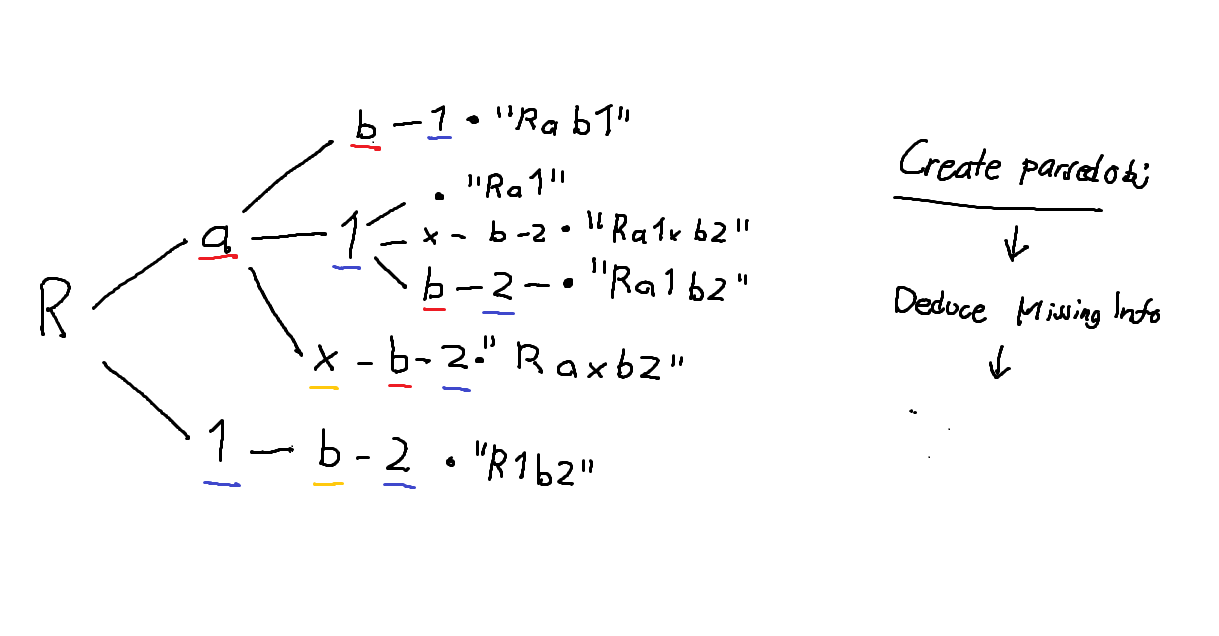 b - 1 • "Rab1"
• "Ra1"
a — 1
x - b - 2 • "Ra1xb2"
b - 2 - • "Ra1b2"
R
x - b - 2 • "Raxb2"
1 - b - 2 • "R1b2"
Create parsedobj
↓
Deduce Missing Info
↓